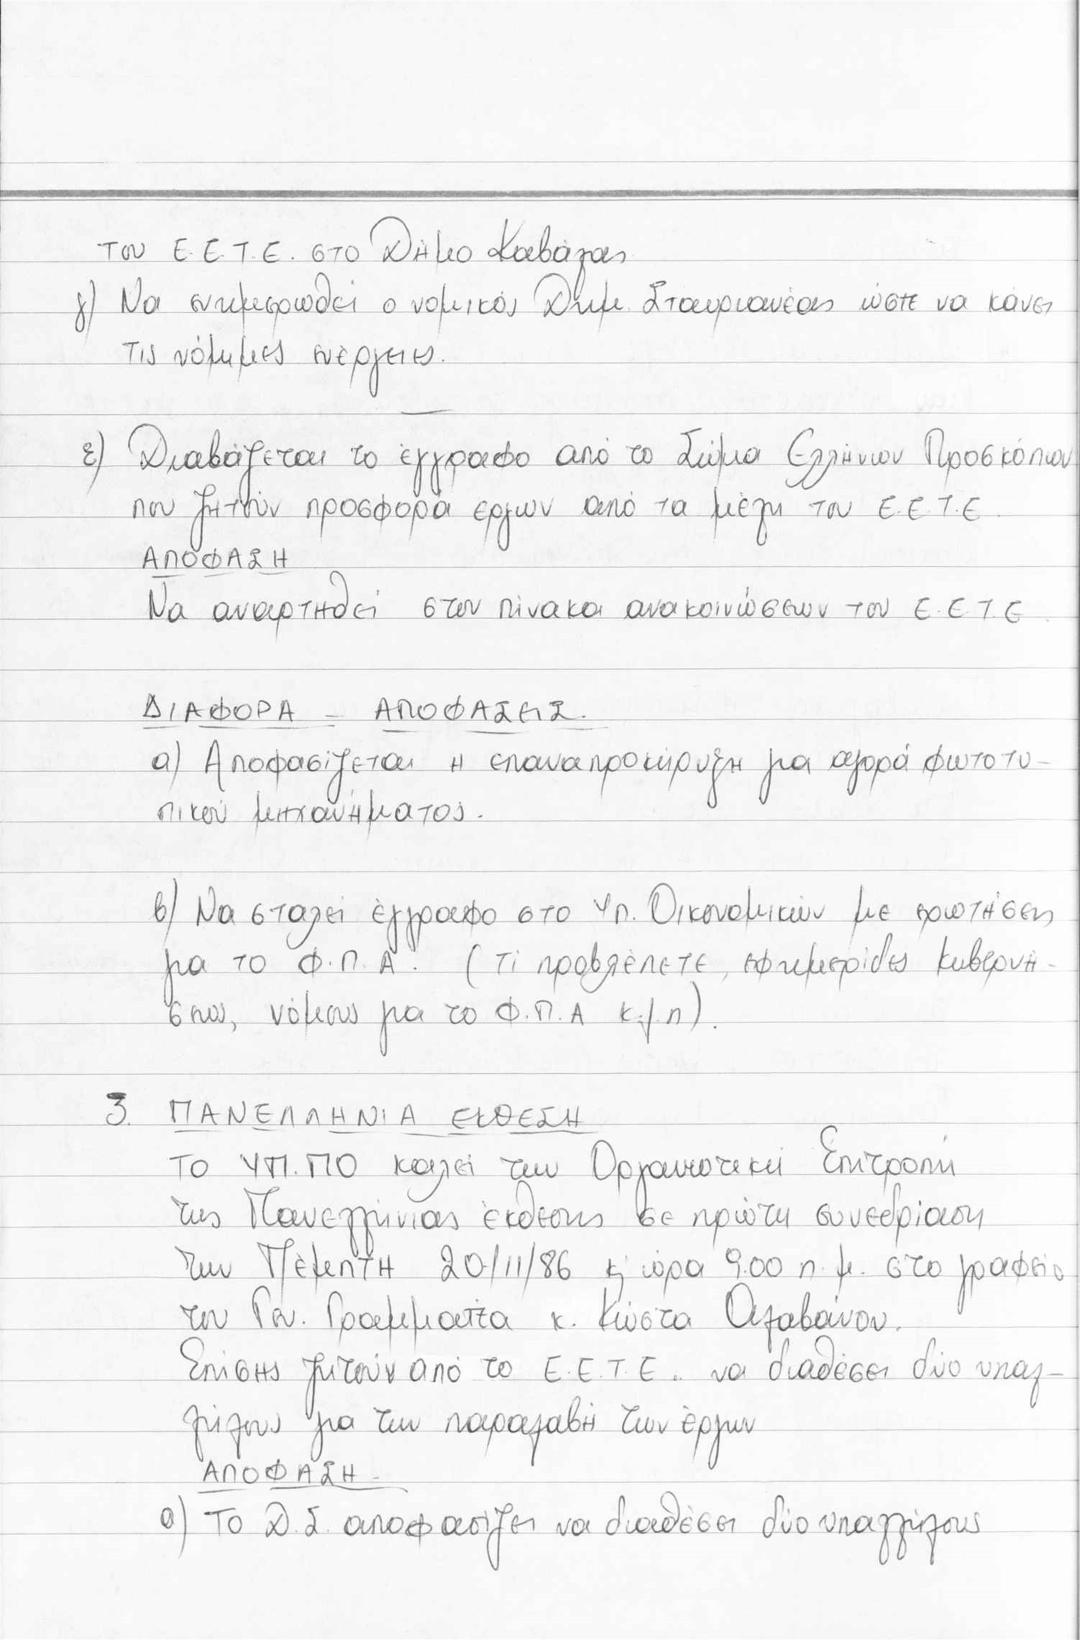 του Ε.Ε.Τ.Ε. στο Δήμο Καβάλας
γ) Να ενημερωθεί ο νομικός Δημ. Σταυριανέας ώστε να κάνει
τις νόμιμες ενέργειες.
ε) Διαβάζεται το έγγραφο από το Σώμα Ελλήνων Προσκόπων
που ζητούν προσφορά έργων από τα μέλη του Ε.Ε.Τ.Ε
ΑΠΟΦΑΣΗ
Να αναρτηθεί στον πίνακα ανακοινώσεων του Ε.Ε.Τ.Ε
ΔΙΑΦΟΡΑ - ΑΠΟΦΑΣΕΙΣ.
α) Αποφασίζεται η επαναπροκύρηξη για αγορά φωτοτυ-
πικού μηχανήματος.
β) Να σταλεί έγγραφο στο Υπ. Οικονομικών με ερωτήσεις
για το Φ.Π.Α. (Τι προβλέπετε, εφημερίδες Κυβερνή-
σεως, νόμους για το Φ.Π.Α κ.λ.π).
3. ΠΑΝΕΛΛΗΝΙΑ ΕΚΘΕΣΗ
Το ΥΠ.ΠΟ καλεί την Οργανωτική Επιτροπή
της Πανελλήνιας έκθεσης σε πρώτη συνεδρίαση
την Πέμπτη 20/11/86 κ' ώρα 9.00 π.μ. στο γραφείο
του Γεν. Γραμματέα κ. Κώστα Αλαβάνου.
Επίσης ζητούν από το Ε.Ε.Τ.Ε. να διαθέσει δύο υπαλ-
λήλους για την παραλαβή των έργων
ΑΠΟΦΑΣΗ -
α) Το Δ.Σ. αποφασίζει να διαθέσει δύο υπαλλήλους